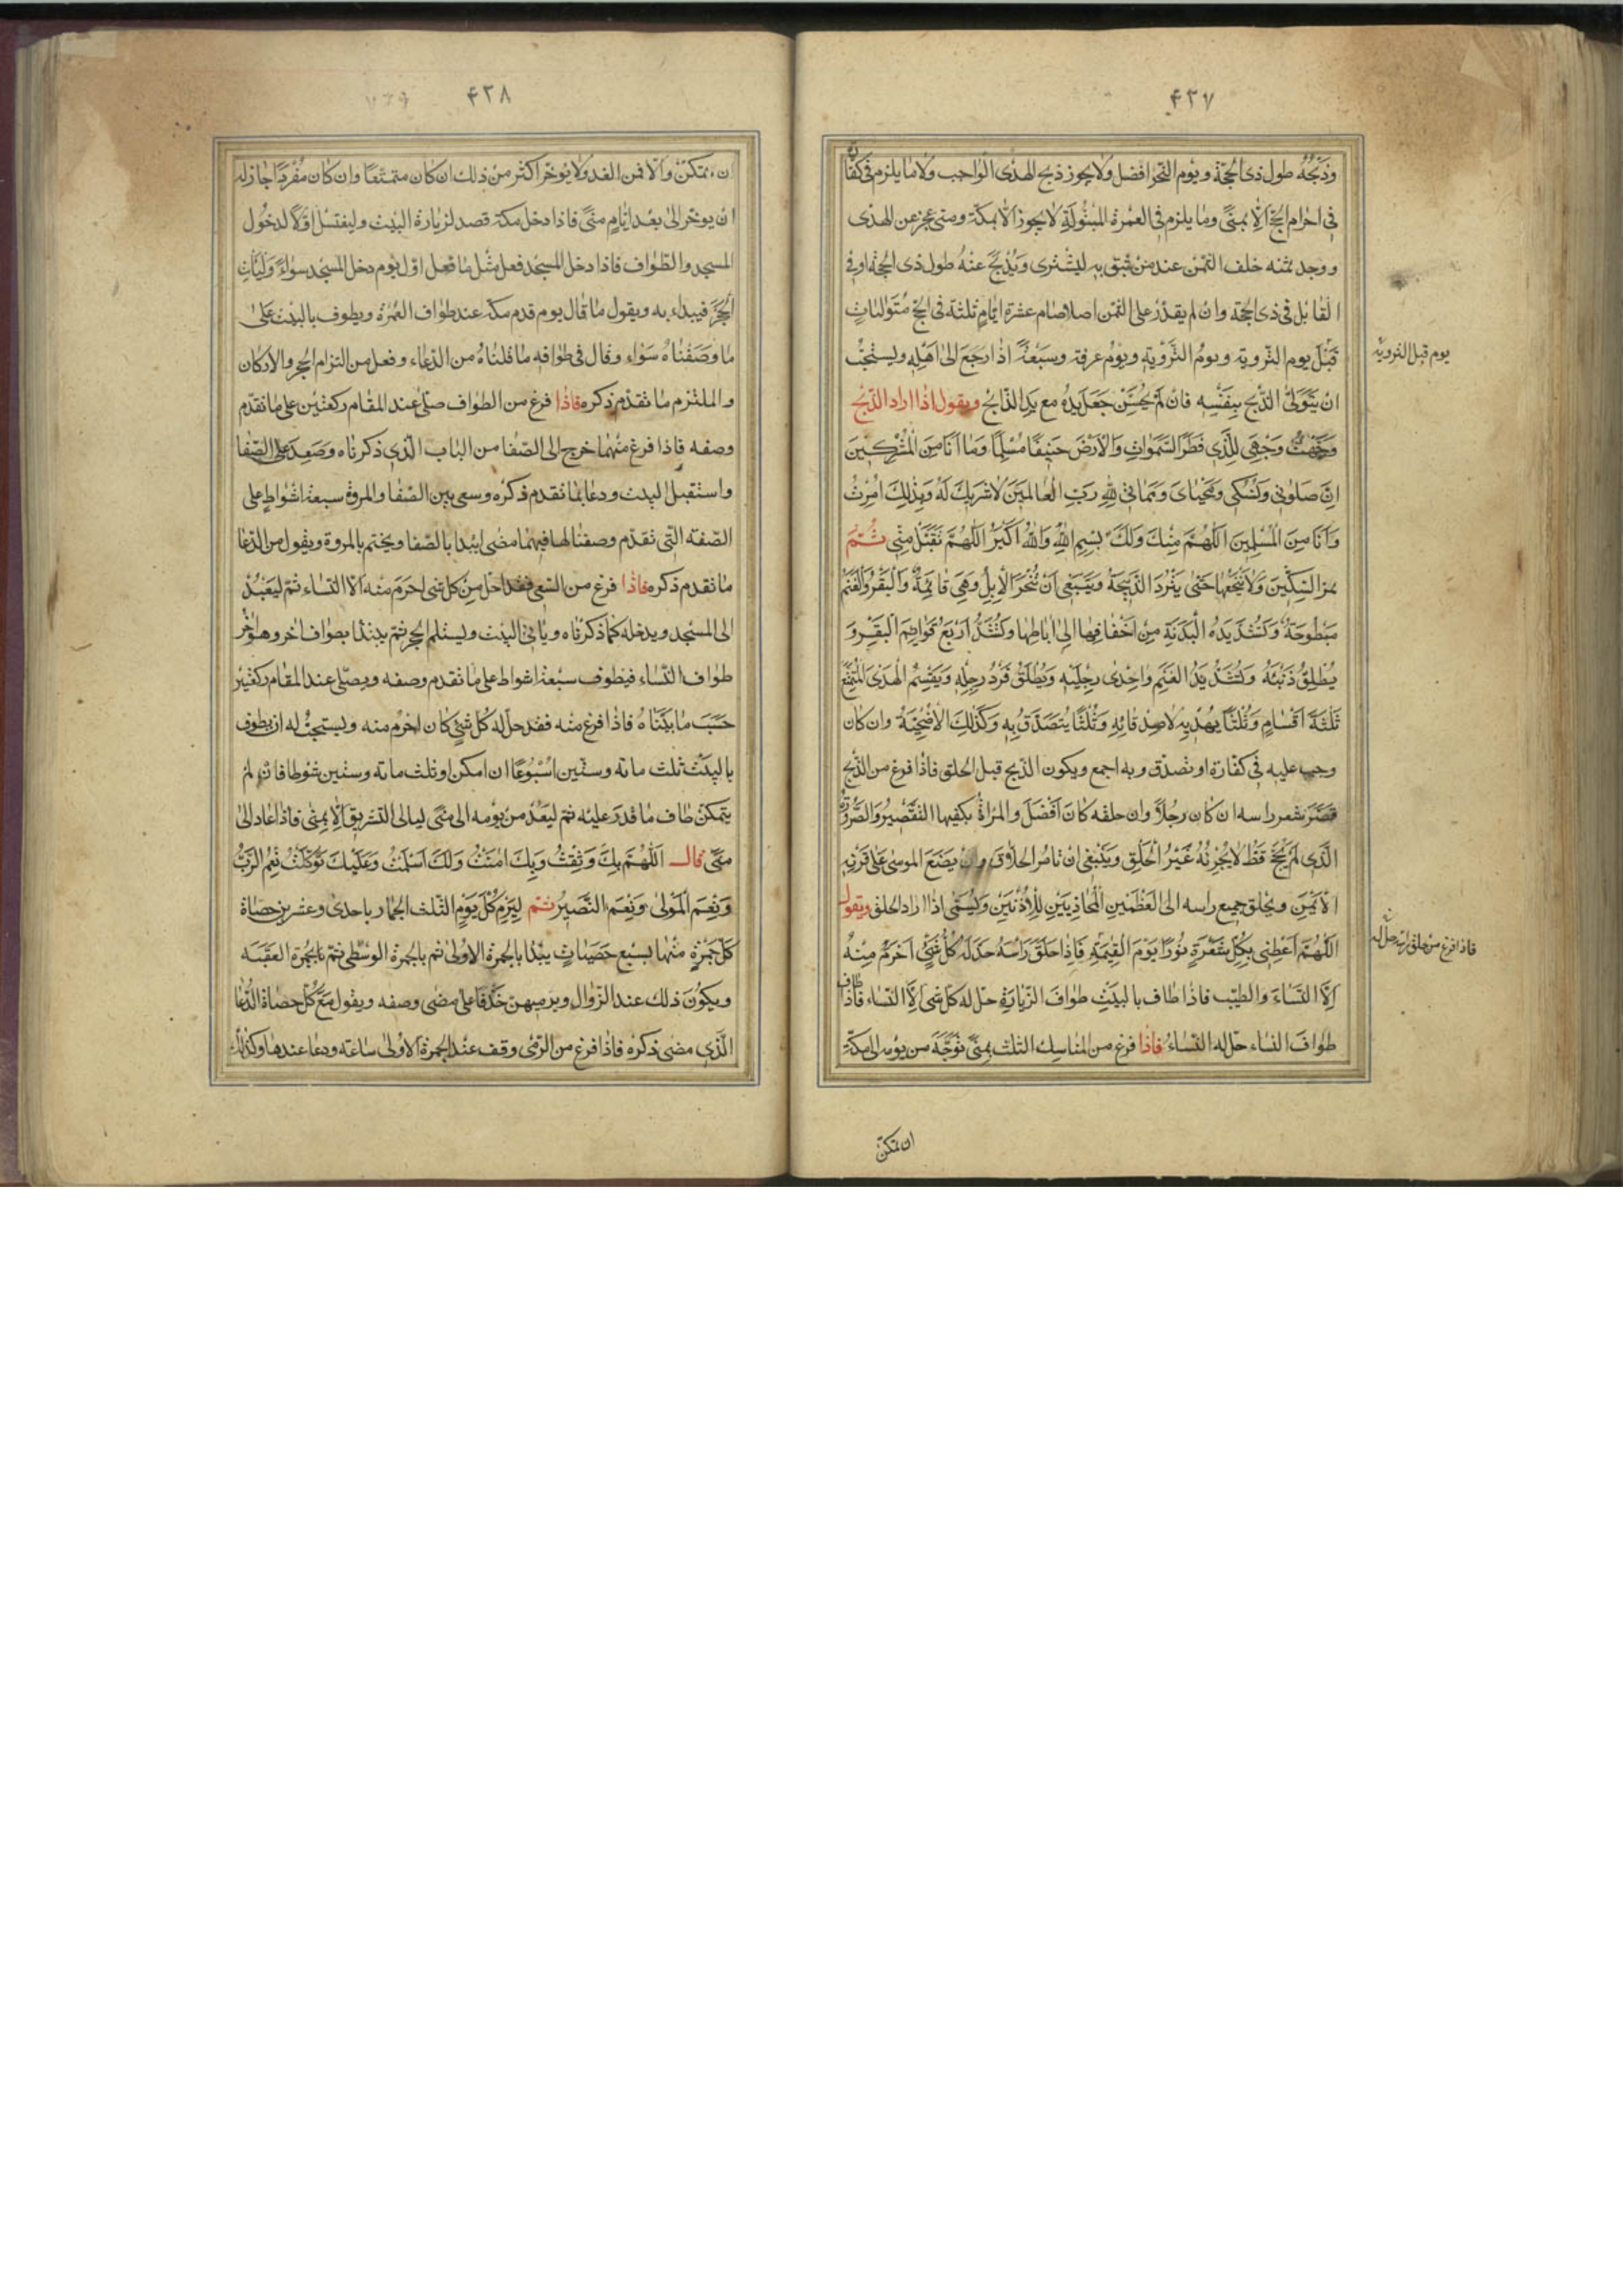 ۴۳۷
وذبحه طول ذی الحجة ویوم النحر افضل ولا یجوز ذبح الهدی الواجب ولا ما یلزم فی کفارة
فی احرام الحج اِلّا بمنیً وما یلزم فی العمرة المبتولَةِ لا یجوز اَلّا بمکة ومتی عجز عن الهدی
ووجد ثمنه خلف الثمن عند من یثق به لیشتری وَیُذبحُ عنهُ طول ذی الحجة او فی
القابل فی ذی الحجة وان لم یقدر علی الثمن اصلا صام عشرة ایّامٍ ثلثة فی الحج متوالیاتٍ
قَبْلَ یوم الترویة ویومُ التَّرْوِیَةِ ویوْم عرفة وسَبْعَةً اذا رَجَعَ الیٰ اَهْلِهِ ویستحبُّ
یوم قبل الترویة
ان یَتَوَلّیَ الذَّبح بِنَفْسِه فان لَمْ یُحْسِنْ جَعَلَ یَدَهُ مع یَدِ الذّابح ویقول اذا اراد الذّبح
وَجَّهْتُ وَجْهِیَ لِلَّذِی فَطَرَ السَّمٰوٰاتِ وَالْاَرْضَ حَنِیفًا مُسْلِمًا وَمٰا اَنَا مِنَ الْمُشْرِکِینَ
اِنَّ صَلوٰتِی وَنُسُکِی وَمَحْیٰایَ وَمَمٰاتِی لِلّٰهِ رَبِّ الْعٰالَمِینَ لٰا شَرِیكَ لَهُ وَبِذٰلِكَ اُمِرْتُ
وَاَنَا مِنَ الْمُسْلِمِینَ اَللّٰهُمَّ مِنْكَ وَلَكَ بِسْمِ اللّٰهِ وَاللّٰهُ اَکْبَرُ اَللّٰهُمَّ تَقَبَّلْ مِنِّی ثُمَّ
یمر السِکّینَ وَلا یَنْخَعُها حَتّیٰ یَبْرُدَ الذَّبِیحَةُ وَیَنْبَغِی اَنْ تُنْحَرَ الْاِبِلُ وَهِیَ قٰائِمَةٌ وَالْبَقَرُ وَالْغَنَمُ
مَبْطُوحَةٌ وَتُشَدُّ یَدُ الْبَدَنَةِ مِنْ اَخْفٰافِهٰا اِلیٰ اٰبٰاطِهٰا وَتُشَدُّ اَرْبَعُ قَوٰائِمِ الْبَقَرِ وَ
یُطْلِقُ ذَنَبَهُ وَتُشَدُّ یَدُ الْغَنَمِ وَاِحْدٰی رِجْلَیْهِ وَیُطْلَقُ فَرْدُ رِجْلِهِ وَیَقْسِمُ الْهَدْیَ الْمُتَمَتِّعُ
ثَلٰثَةَ اَقْسٰامٍ وَثُلْثًا یُهْدِیهِ لِاَصْدِقٰائِهِ وَثُلْثًا یُتَصَدَّقُ بِهِ وَکَذٰلِكَ الْاُضْحِیَّةُ وان کان
وجب علیه فی کفّارة او تصدّق به اجمع ویکون الذّبح قبل الحلق فاذا فرغ من الذّبح
قَصَّرَ شعر راسه ان کان رجُلاً وان حلقه کان اَفْضَلَ والمراةُ یکفیها التَّقْصِیرُ وَالصَّرُورَةُ
الَّذی لَمْ یَحُجَّ قَطُّ لا یُجْزِئُهُ غَیْرُ الْحَلْقِ وَیَنْبَغِی اَنْ تامر الحلّاق وان یَضَعَ الموسیٰ عَلیٰ قَرْنِهِ
الْاَیْمَنِ ویَحْلِقَ جمیع راسه الی الْعَظْمَیْنِ الْمُحٰاذِیَیْنِ لِلْاُذُنَیْنِ وَلْیُسَمِّ اذا اراد الحلق ویقول
اَللّٰهُمَّ اَعْطِنِی بِکُلِّ شَعْرَةٍ نُورًا یَوْمَ الْقِیٰمَةِ فَاِذٰا حَلَقَ رَاْسَهُ حَلَّ لَهُ کُلُّ شَیْءٍ اَحْرَمَ مِنْهُ
فاذا فرغ من حلق راسه حلّ له
اِلَّا النِّسٰاءَ وَالطِّیب فاذا طاف بالبیتِ طوافَ الزِّیٰارَةِ حلّ له کلّ شیء اِلَّا النّسٰاء فاذا طاف
طوافَ النساء حلّ له النّسٰاءُ فاذا فرغ من المناسك الثلث بِمِنیً تَوَجَّهَ من یومه الی مکّةِ
ان تمکن
۴۳۸
ان تمکّن وَاَلّا فمن الغد ولا یوخّر اکثر من ذلك ان کان متمتعًا وان کان مُفْرِدًا جاز له
ان یوخّر الیٰ بعد ایّامِ منیً فاذا دخل مکة قصد لزیارة البیت ولیغتسل اوّلاً لدخول
المسجد والطّواف فاذا دخل المسجد فعل مثل ما فعل اوّل یوم دخل المسجد سواءً وَلْیَاْتِ
الْحَجَرَ فیبداء به ویقول ما قال یوم قدم مکة عند طواف العُمْرَة ویطوف بالبیت عَلیٰ
ما وصَفْناهُ سَوٰاء وقال فی طوافه ما قلناهُ من الدّعاء وفعل من التزام الحجر والارکان
والملتزم ما تقدّم ذکره فاذا فرغ من الطواف صلّی عند المقٰام رکعتین علی ما تقدّم
وصفه فاذا فرغ منهما خرج الی الصّفا من الباب الّذی ذکرناه وَصَعِدَ علی الصّفا
واستقبل البیت ودعا بما تقدم ذکره وسعی بین الصّفا والمروة سبعة اشواط علی
الصّفة الّتی تقدّم وصفنا لها فیما مضی یبدا بالصّفا ویختم بالمروة ویقول من الدّعا
ما تقدم ذکره فاذا فرغ من السّعی فقد احلّ من کلّ شیء احرم منه اِلّا النّساء ثمّ لیعدْ
الی المسجد ویدخله کما ذکرناه ویاتی البیت ویستلم الحجر ثم یبتدا بطواف اخر وهو
طواف النّساء فیطوف سبعة اشواط علی ما تقدم وصفه ویصلّی عند المقام رکعتین
حَسَبَ ما بیّنّاهُ فاذا فرغ منه فقد حلّ له کلّ شیءٍ کان اَحْرَمَ منه ولیستحبُّ له ان یطوف
بالبیت ثلث مائة وستّین اُسْبُوعًا ان امکن او ثلث مائة وستین شوطا فان لم
یتمکن طاف ما قدر علیه ثم لیعُدْ من یومه الی منیً لیالی التشریق اِلّا بمنی فاذا عاد الیٰ
منیً قال اَللّٰهُمَّ بِكَ وَثِقْتُ وَبِكَ اٰمَنْتُ وَلَكَ اَسْلَمْتُ وَعَلَیْكَ تَوَکَّلْتُ نِعْمَ الرَّبُّ
وَنِعْمَ الْمَوْلیٰ وَنِعْمَ النَّصِیرُ ثم لِیَرْمِ کُلَّ یَوْمٍ الثلث الجمار باحدی وعشرین حصاة
کلّ جمرةٍ منها بسبع حَصَیٰاتٍ یبدا بالجمرة الاولیٰ ثم بالجمرة الوسْطی ثمّ بالجمرة العقبَه
ویکُون ذلك عند الزّوال ویرمیهنّ خَذْفًا علی مضی وصفه ویقول مع کلّ حصاة الدُّعا
الّذی مضی ذکره فاذا فرغ من الرّمی وقف عند الجمرة الاولیٰ ساعة ودعا عندها وکذلك